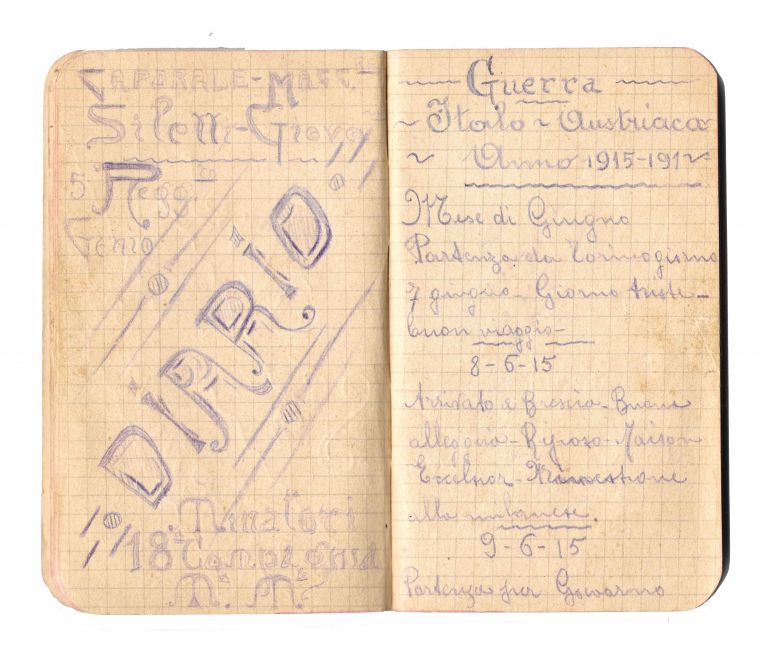 CAPORALE-MAGG.
Siletti-Giova
5° Regg.to
Genio
DIARIO
Minatori
18ª Compagnia
M. M.
Guerra
Italo - Austriaca
Anno 1915-191
Mese di Giugno
Partenza da Torino giorno
7 giugno - Giorno triste -
buon viaggio -
8-6-15
Arrivato a Brescia - Buona
alleggria - Riposo - Maison
Excelsior
alla milanese.
9-6-15
Partenza per Gavarno